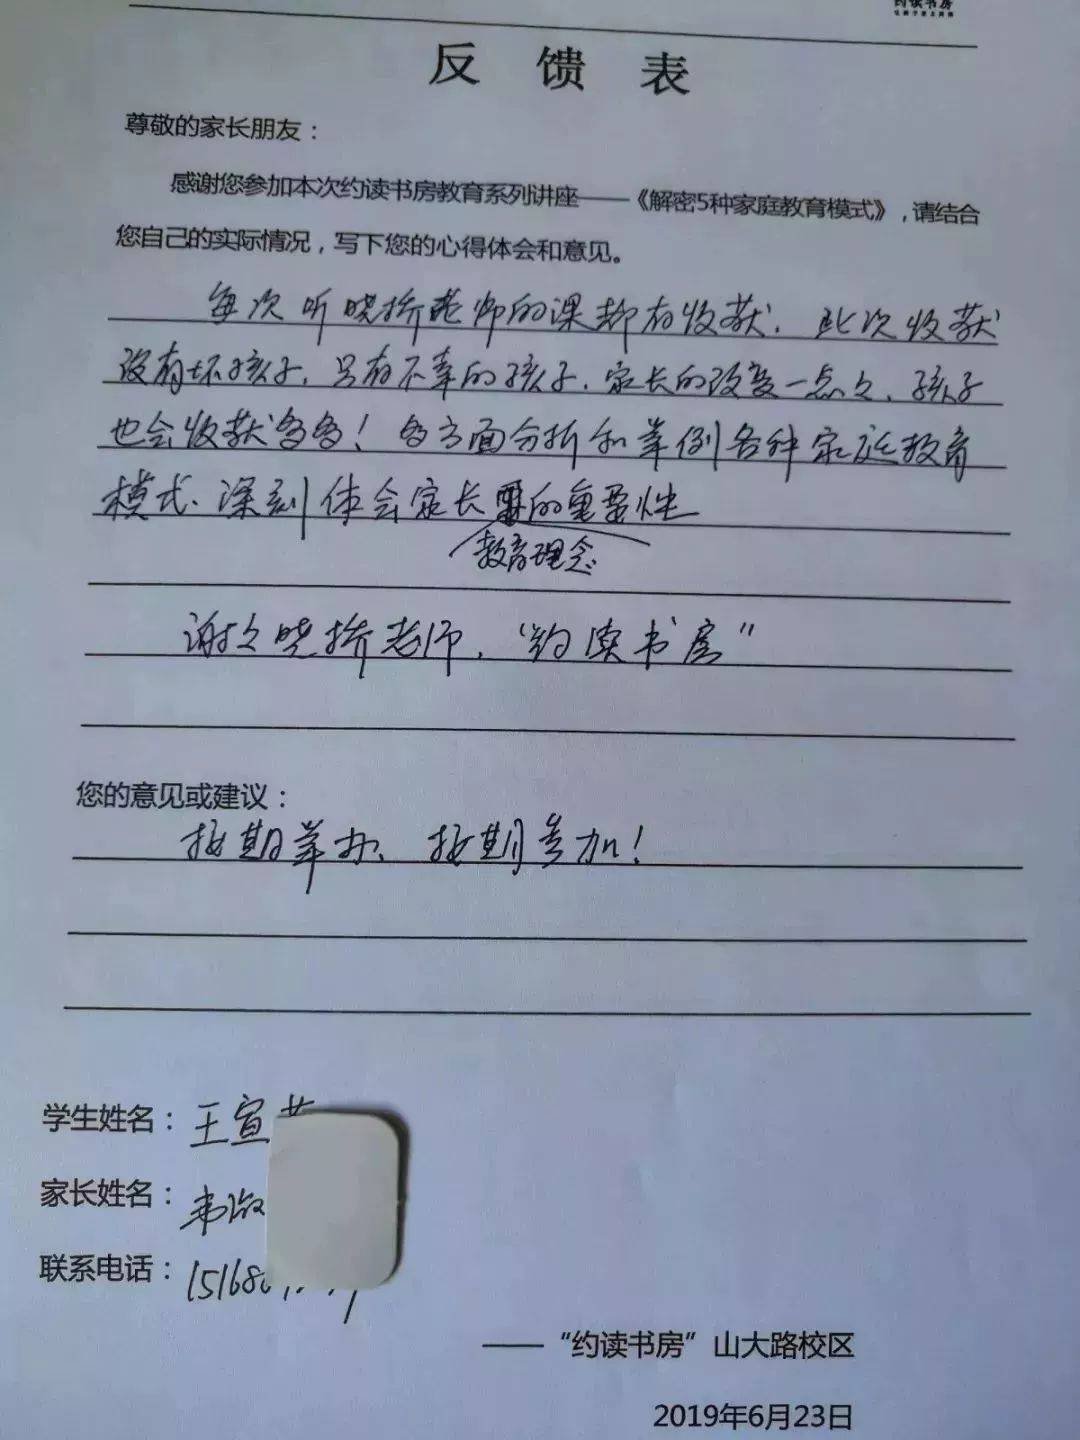 约读书房
反馈表
尊敬的家长朋友：
感谢您参加本次约读书房教育系列讲座——《解密5种家庭教育模式》，请结合
您自己的实际情况，写下您的心得体会和意见。
每次听晓桥老师的课都有收获．此次收获
没有坏孩子．只有不幸的孩子．家长的改变一点点、孩子
也会收获多多！多方面分析和举例各种家庭教育
模式、深刻体会家长的重要性
教育理念
谢谢晓桥老师．“约读书房”
您的意见或建议：
按期举办、按期参加！
学生姓名：王宣
家长姓名：韦淑
联系电话：15168
——“约读书房”山大路校区
2019年6月23日